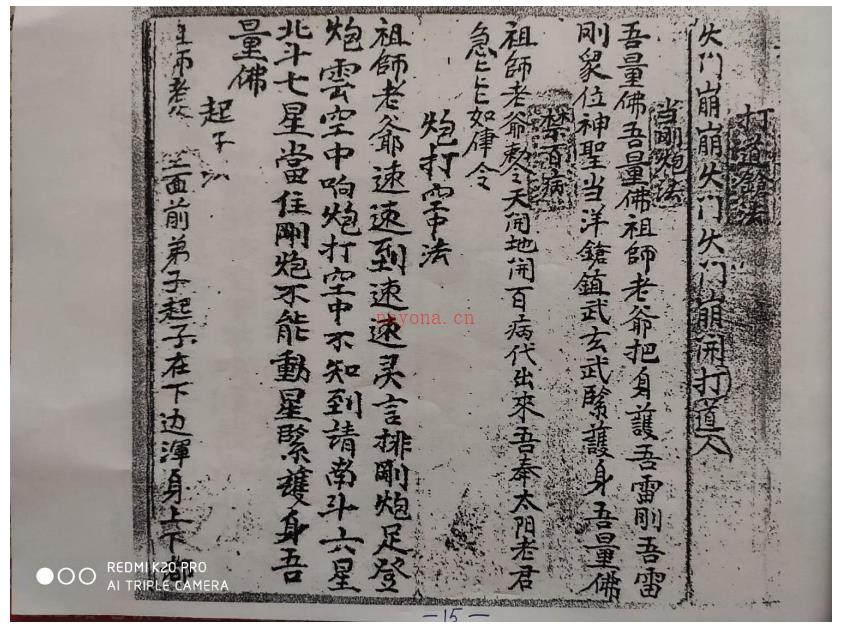 打道鎗法
失门崩崩失门失门崩開打道人
当剛炮法
吾量佛吾量佛祖師老爷把身護吾雷剛吾雷
剛眾位神聖当洋鎗鎮武玄武緊護身吾量佛
禁百病
祖師老爷敕令天開地開百病代出來吾奉太阳老君
急急如律令
炮打空中法
祖師老爺速速到速速灵言排剛炮足登
炮雲空中响炮打空中不知到請南斗六星
北斗七星當住剛炮不能動星緊護身吾
量佛
起子法
祖师老爷 面前弟子起子在下边渾身上下
nayona.cn
REDMI K20 PRO
AI TRIPLE CAMERA
-15-